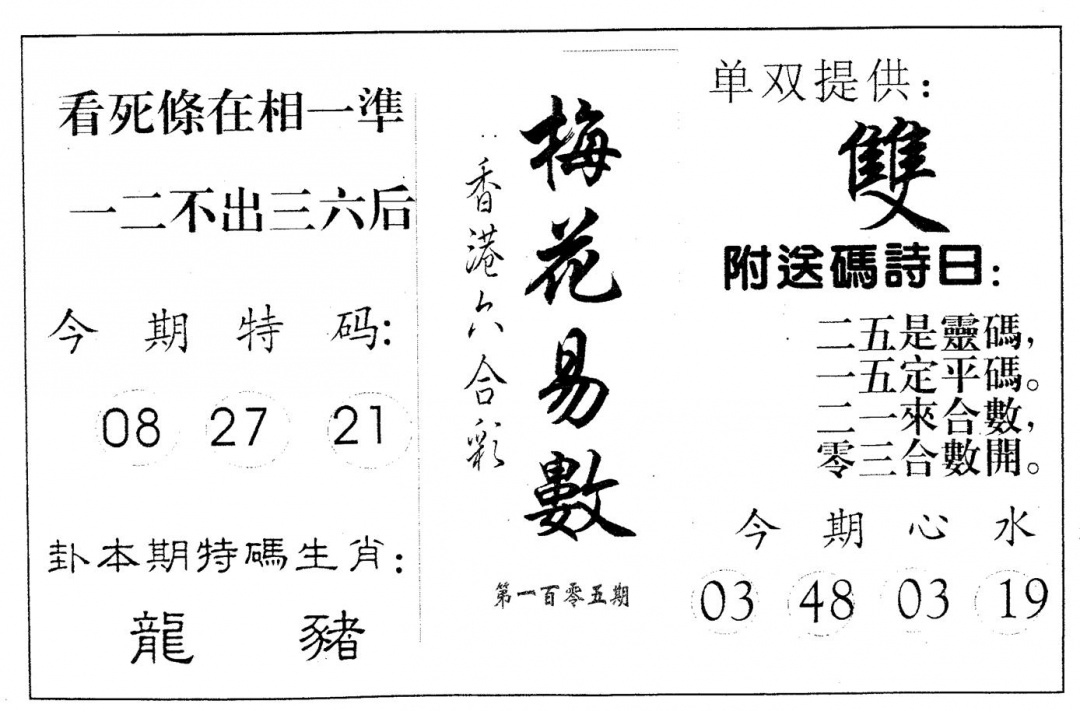 看死條在相一準
一二不出三六后
今期特码:
08 27 21
卦本期特碼生肖:
龍 豬
香港六合彩
梅花易數
第一百零五期
单双提供:
雙
附送碼詩曰:
二五是靈碼,
一五定平碼。
二一來合數,
零三合數開。
今期心水
03 48 03 19